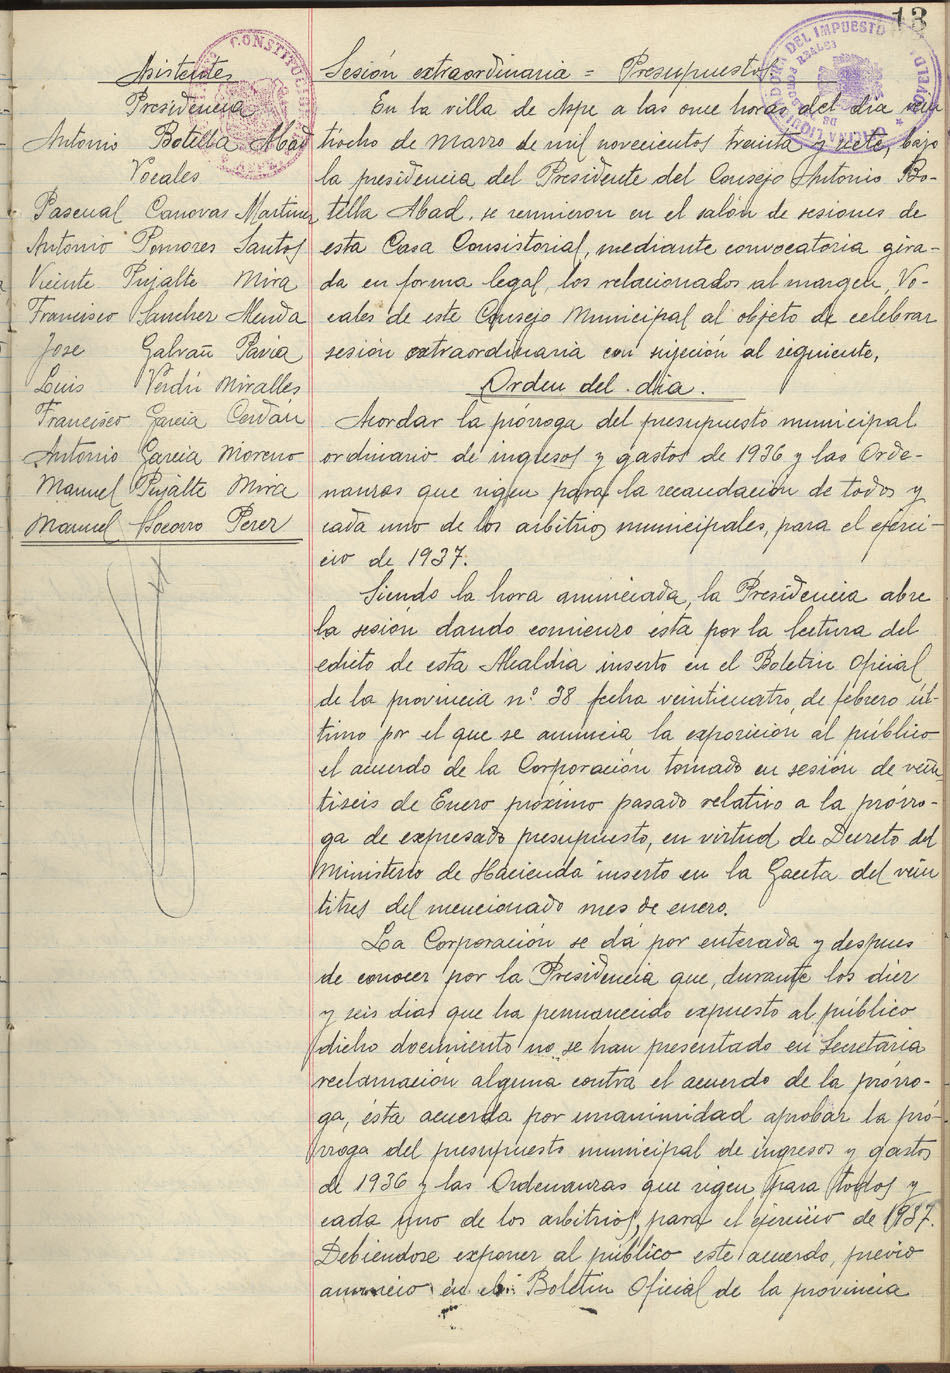 13
Asistentes
Presidencia
Antonio Botella Abad
Vocales
Pascual Canovas Martinez
Antonio Pomares Santos
Vicente Pujalte Mira
Francisco Sanchez Almida
Jose Galvañ Pavia
Luis Verdú Miralles
Francisco Garcia Cerdán
Antonio Garcia Moreno
Manuel Pujalte Mira
Manuel Socorro Perez
Sesión extraordinaria = Presupuestos
En la villa de Aspe a las once horas del dia vein
tiocho de Marzo de mil novecientos treinta y siete, bajo
la presidencia del Presidente del Consejo Antonio Bo-
tella Abad, se reunieron en el salón de sesiones de
esta Casa Consistorial, mediante convocatoria gira-
da en forma legal, los relacionados al margen, Vo-
cales de este Consejo Municipal al objeto de celebrar
sesión extraordinaria con sujeción al siguiente,
Orden del dia.
Acordar la prórroga del presupuesto municipal
ordinario de ingresos y gastos de 1936 y las Orde-
nanzas que rigen para la recaudación de todos y
cada uno de los arbitrios municipales, para el ejerci-
cio de 1937.
Siendo la hora anunciada, la Presidencia abre
la sesión dando comienzo ésta por la lectura del
edicto de esta Alcaldia inserto en el Boletin Oficial
de la provincia nº 38 fecha veinticuatro, de febrero úl-
timo por el que se anuncia la exposición al público
el acuerdo de la Corporación tomado en sesión de vein-
tiseis de Enero próximo pasado relativo a la prórro-
ga de expresado presupuesto, en virtud de Decreto del
Ministerio de Hacienda inserto en la Gaceta del vein
titres del mencionado mes de enero.
La Corporación se dá por enterada y despues
de conocer por la Presidencia que, durante los diez
y seis dias que ha permanecido expuesto al público
dicho documento no se han presentado en Secretaria
reclamación alguna contra el acuerdo de la prórro-
ga, ésta acuerda por unanimidad aprobar la pró-
rroga del presupuesto municipal de ingresos y gastos
de 1936 y las Ordenanzas que rigen para todos y
cada uno de los arbitrios, para el ejercicio de 1937.
Debiendose exponer al público este acuerdo, previo
anuncio en el Boletin Oficial de la provincia